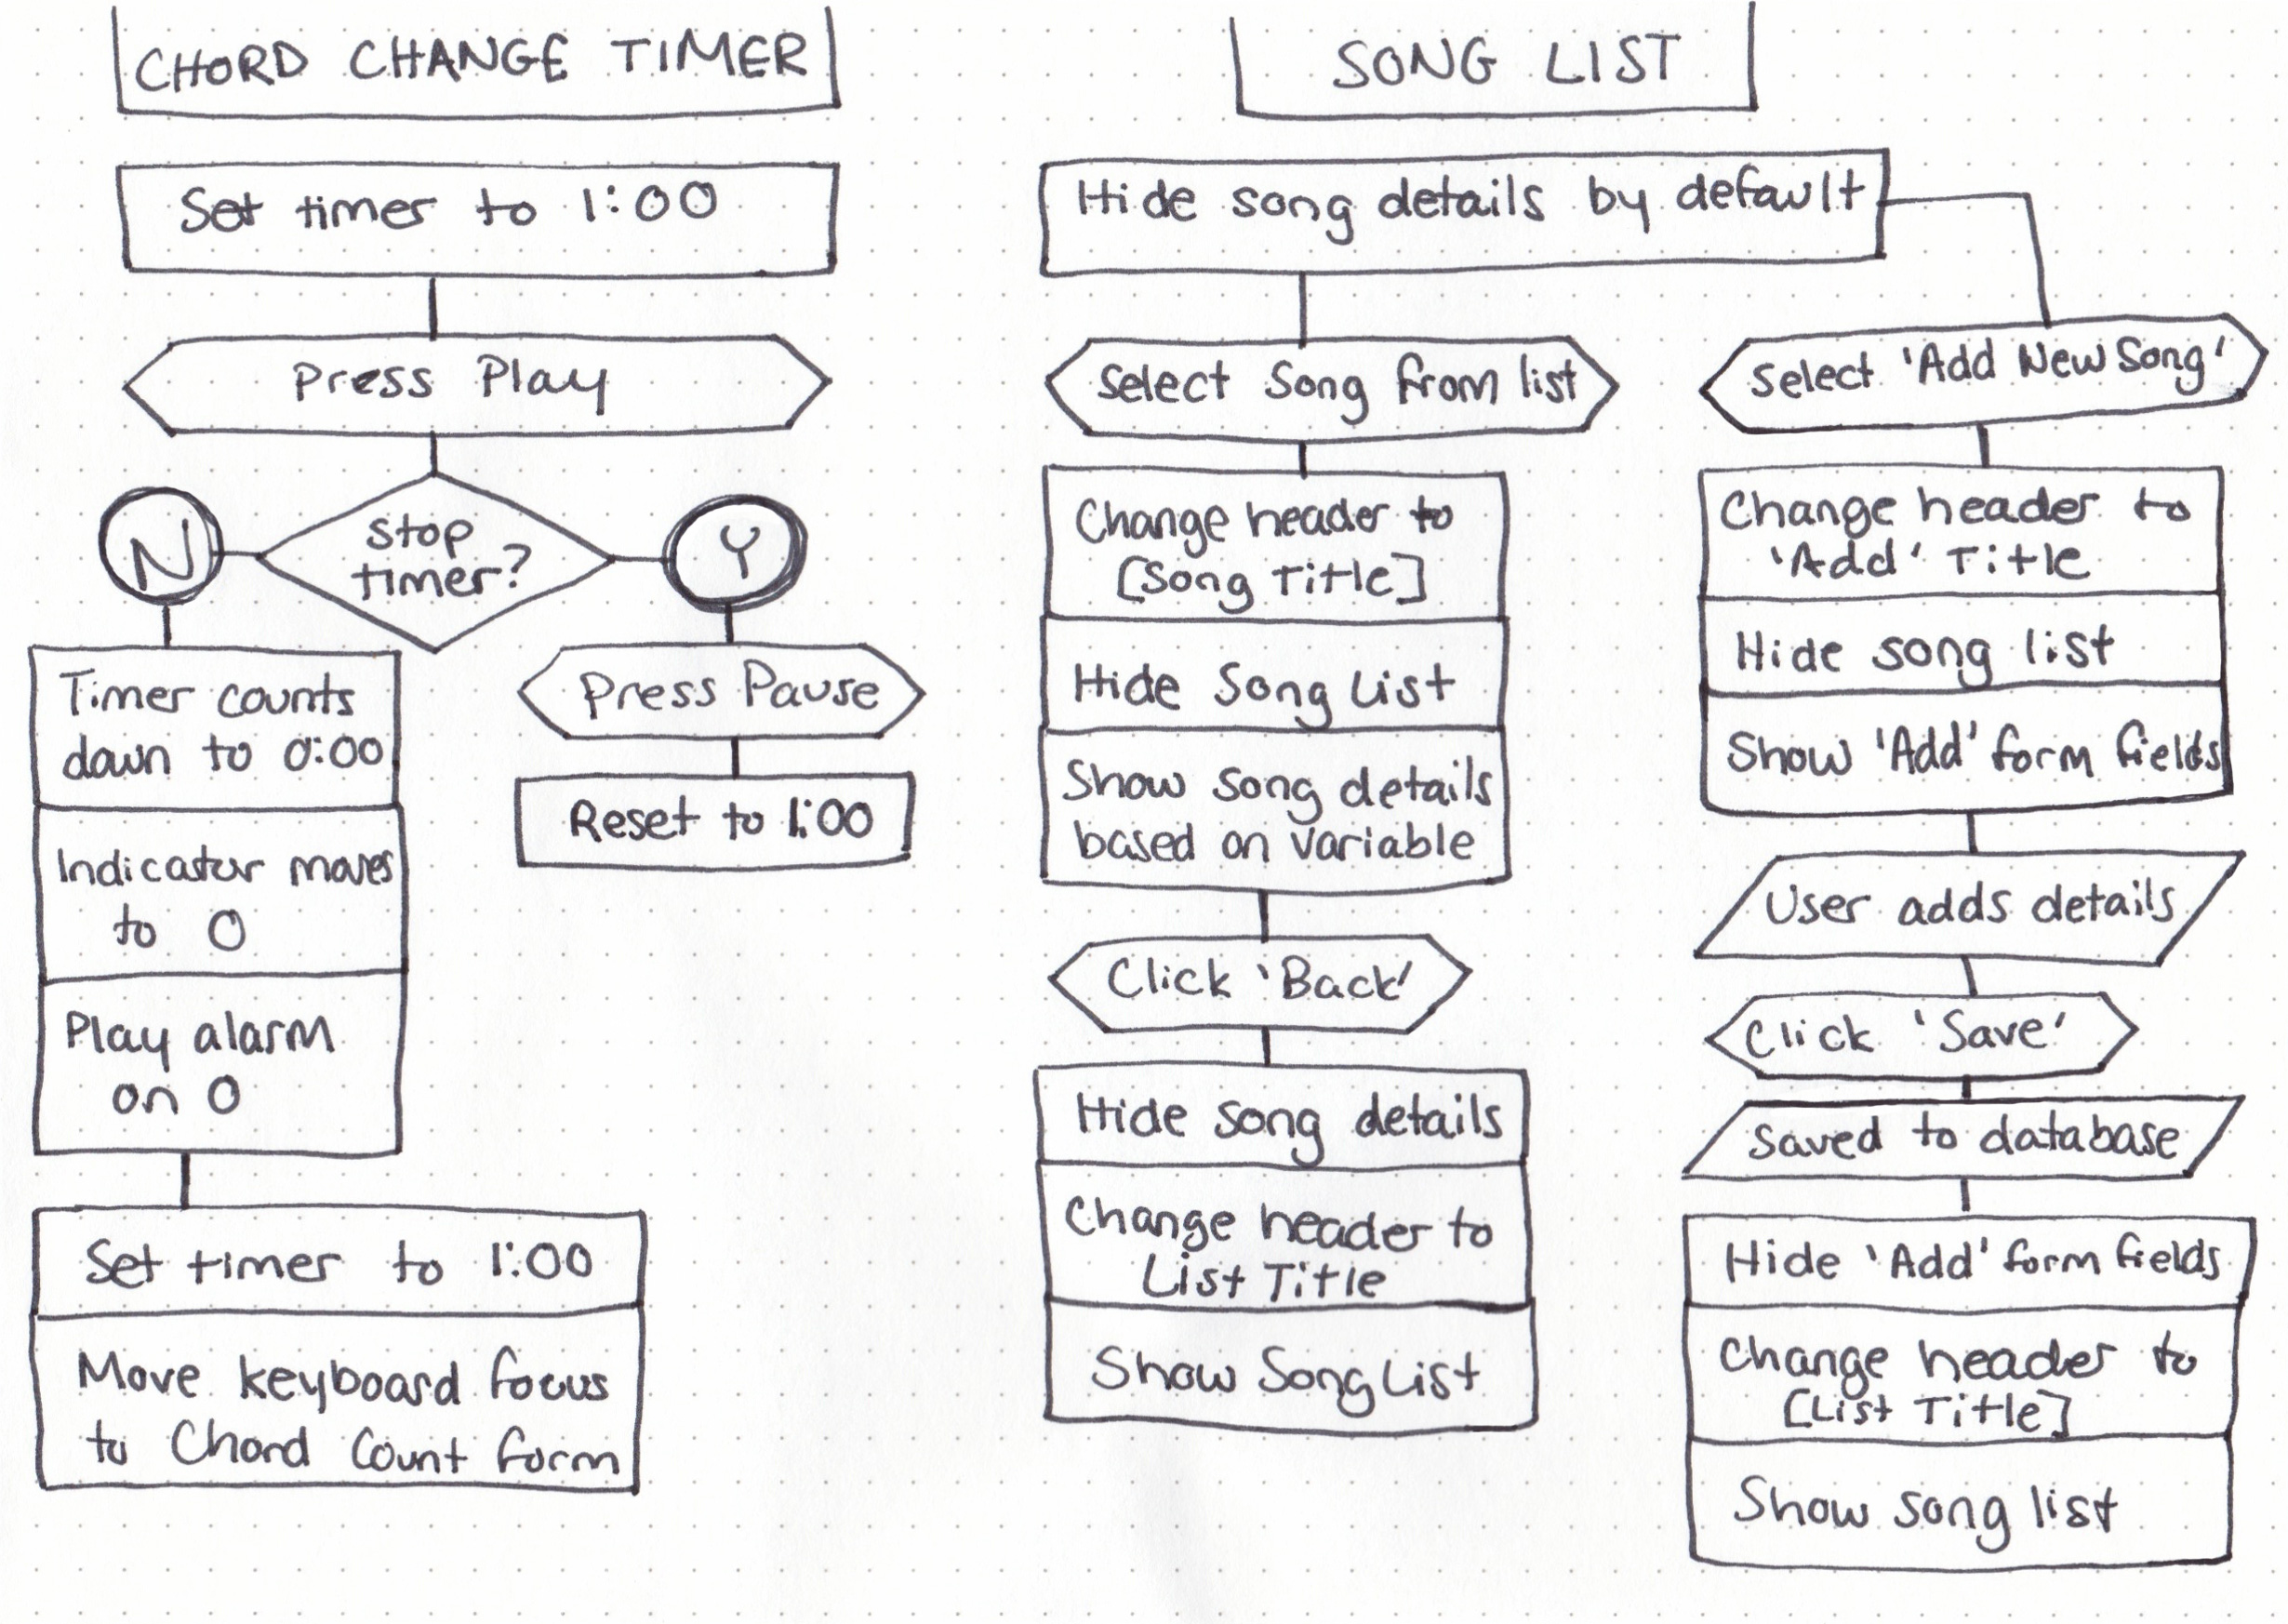 CHORD CHANGE TIMER
Set timer to 1:00
Press Play
Stop
timer?
N
Y
Timer counts
down to 0:00
Indicator moves
to 0
Play alarm
on 0
Press Pause
Reset to 1:00
Set timer to 1:00
Move keyboard focus
to Chord Count form
SONG LIST
Hide song details by default
Select Song from list
Change header to
[Song Title]
Hide Song List
Show song details
based on variable
Click 'Back'
Hide song details
Change header to
List Title
Show Song List
Select 'Add New Song'
Change header to
'Add' Title
Hide song list
Show 'Add' form fields
User adds details
Click 'Save'
Saved to database
Hide 'Add' form fields
Change header to
[List Title]
Show song list